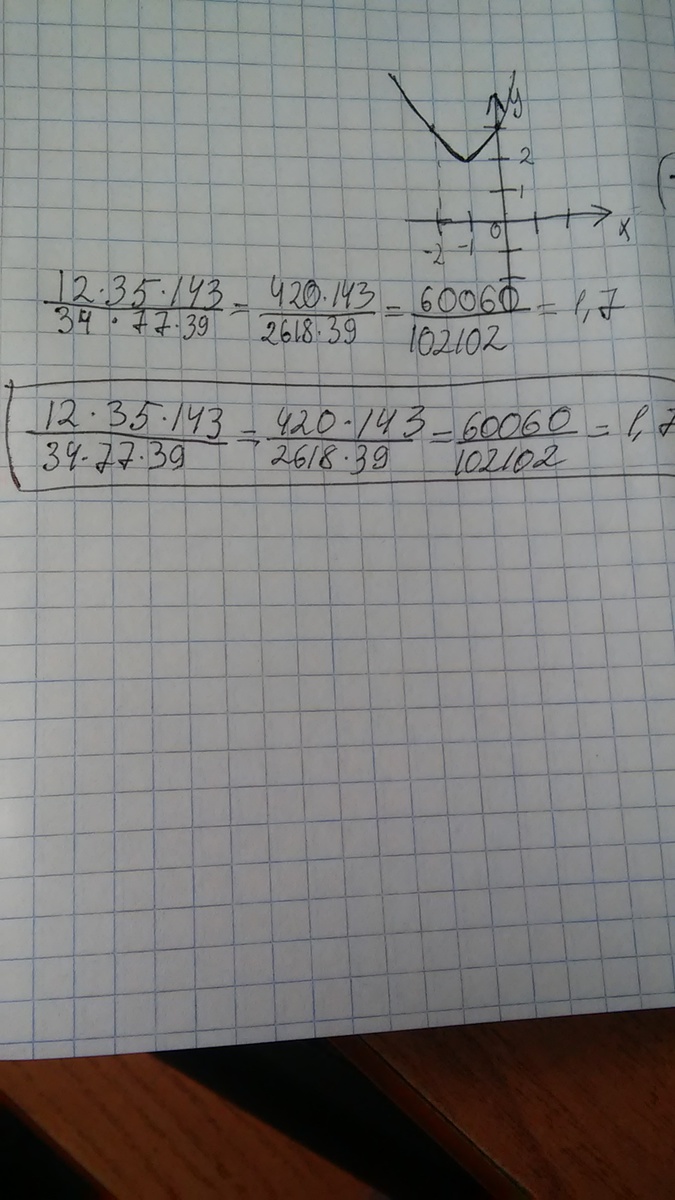 y
2
1
0
-2 -1 x
12·35·143 / 34·77·39 = 420·143 / 2618·39 = 60060 / 102102 = 1,7
12·35·143 / 34·77·39 = 420·143 / 2618·39 = 60060 / 102102 = 1,7